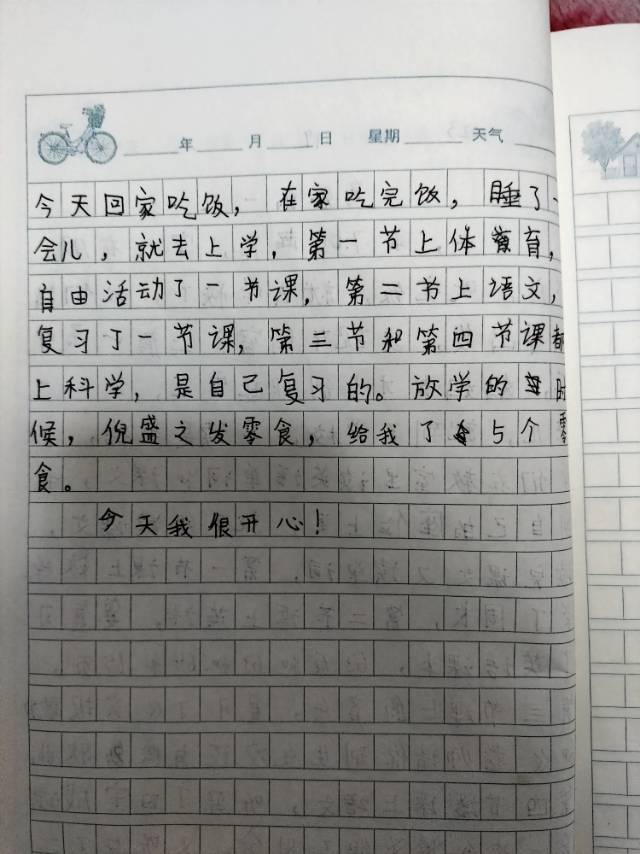 年 月 日 星期 天气
今天回家吃饭，在家吃完饭，睡了一
会儿，就去上学，第一节上体育，
自由活动了一节课，第二节上语文，
复习了一节课，第三节和第四节课都
上科学，是自己复习的。放学的时
候，倪盛之发零食，给我了5个零
食。
今天我很开心！